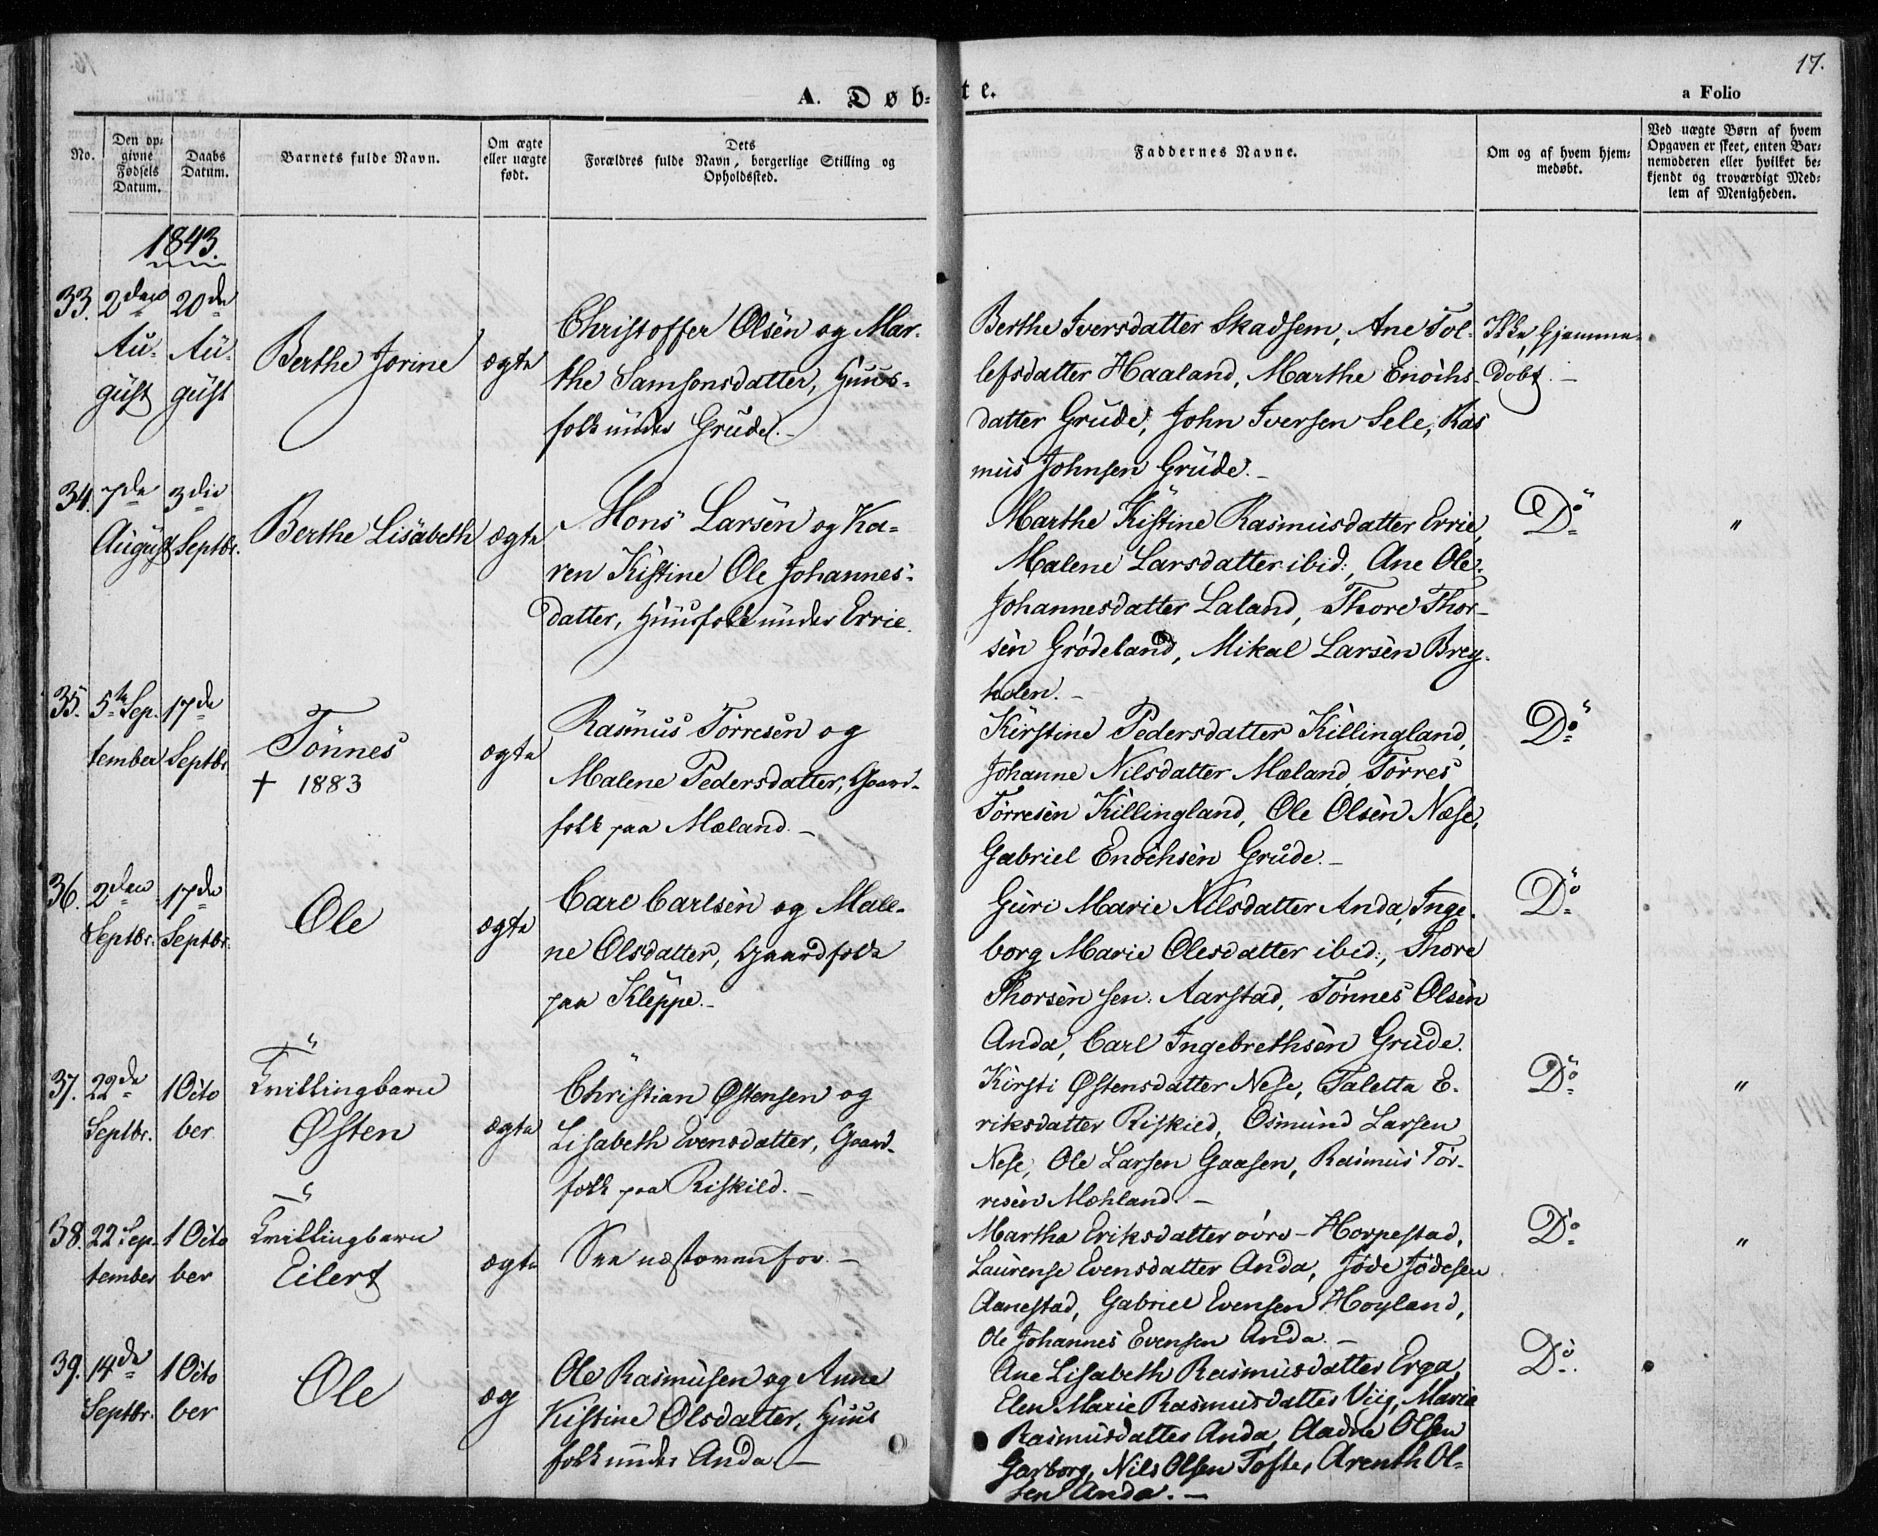 17.
A. Døb-
te.
a Folio
No.
Den op-
givne
Fødsels
Datum.
Daabs
Datum.
Barnets fulde Navn.
Om ægte
eller uægte
født.
Dets
Forældres fulde Navn, borgerlige Stilling og
Opholdssted.
Faddernes Navne.
Om og af hvem hjem-
medøbt.
Ved uægte Børn af hvem
Opgaven er skeet, enten Bar-
nemoderen eller hvilket be-
kjendt og troværdigt Med-
lem af Menigheden.
1843.
33.
2den
Au-
gust
20de
Au-
gust
Berthe Jorine
ægte
Christoffer Olsen og Mar-
the Samsonsdatter, Huus-
folk under Grude.-
Berthe Iversdatter Skadsem, Ane Tol-
lefsdatter Haaland, Marthe Enochs-
datter Grude, John Iversen Sele, Ras
mus Johnsen Grude.-
Ikke Hjemme-
døbt.-
34.
7de
August
3die
Septbr.
Berthe Lisabeth
ægte
Mons Larsen og Ka-
ren Kistine Ole Johannes-
datter, Huusfolk under Errie.
Marthe Kistine Rasmusdatter Errie,
Malene Larsdatter ibid:, Ane Ole-
Johannesdatter Laland, Thore Thor-
sen Grødeland, Mikal Larsen Brey-
holen.-
Do
"
35.
5te Sep-
tember
17de
Septbr.
Tönnes
† 1883
ægte
Rasmus Torresen og
Malene Pedersdatter, Gaard-
folk paa Mæland.-
Kirstine Pedersdatter Killingland,
Johanne Nilsdatter Mæland, Torres
Torresen Killingland, Ole Olsen Næse,
Gabriel Enochsen Grude.-
Do
36.
2den
Septbr.
17de
Septbr.
Ole
ægte
Carl Carlsen og Male-
ne Olsdatter, Gaardfolk
paa Kleppe.-
Guri Marie Nilsdatter Anda, Inge-
borg Marie Olesdatter ibid:, Thore
Thorsen sen. Aarstad, Tönnes Olsen
Anda, Carl Ingebrethsen Grude.
Do
37.
22de
Septbr.
1 Octo
ber
Tvillingbarn
Østen
ægte
Christian Østensen og
Lisabeth Evensdatter, Gaard-
folk paa Riskild.-
Kirsti Østensdatter Nese, Taletta E-
riksdatter Riskied, Osmund Larsen
Nese, Ole Larsen Gaasen, Rasmus Tor-
resen Mæhland.-
Do
"
38.
22 Sep-
tember
1 Octo
ber
Tvillingbarn
Eilert
ægte
See næstovenfor.-
Martha Eriksdatter øvre-Horpestad,
Laurense Evensdatter Anda, Jøde Jødesen
Aanestad, Gabriel Evensen Hoyland,
Ole Johannes Evensen Anda.-
Do
"
39.
14de
Septbr.
1 Octo
ber
Ole
æg
Ole Rasmusen og Anne
Kistine Olsdatter, Huus
folk under Anda-
Ane Lisabeth Rasmusdatter Erga,
Elen Marie Rasmusdatter Viig, Marie
Rasmusdatter Anda, Aadne Olsen
Garborg, Nils Olsen Tofte, Arenth Ol-
sen Anda.-
Do